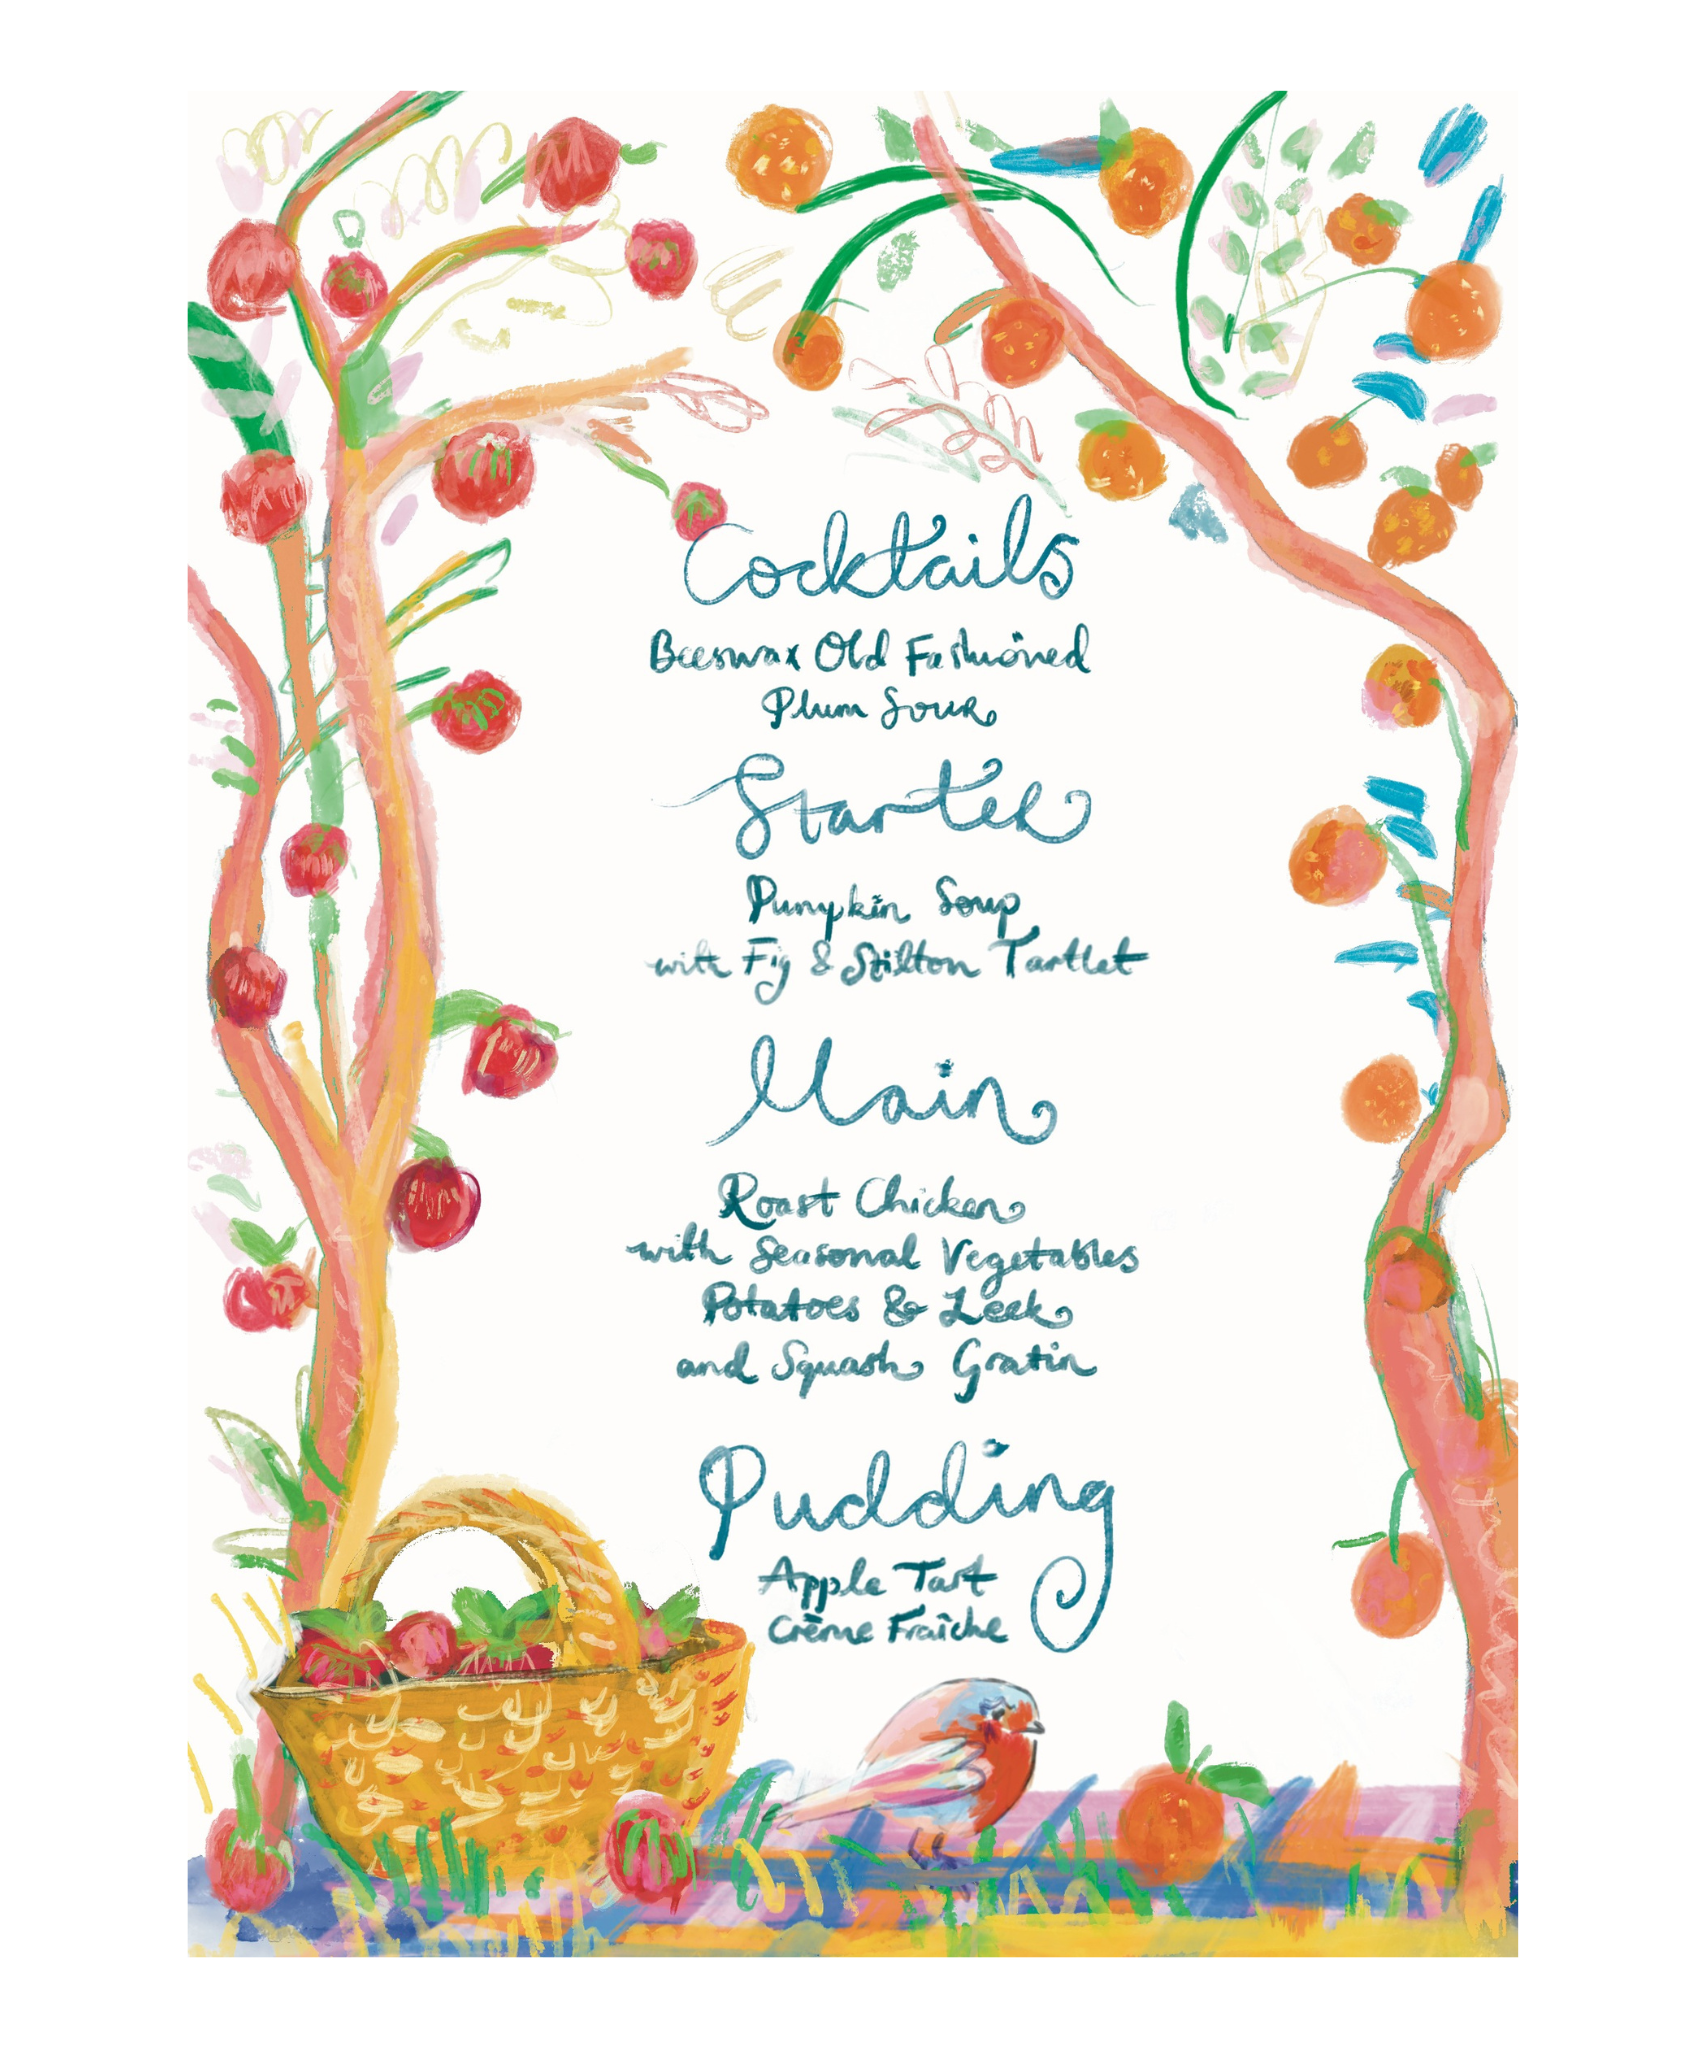 Cocktails
Beeswax Old Fashioned
Plum Sour
Starter
Pumpkin Soup
with Fig & Stilton Tartlet
Main
Roast Chicken
with Seasonal Vegetables
Potatoes & Leek
and Squash Gratin
Pudding
Apple Tart
Crème Fraîche